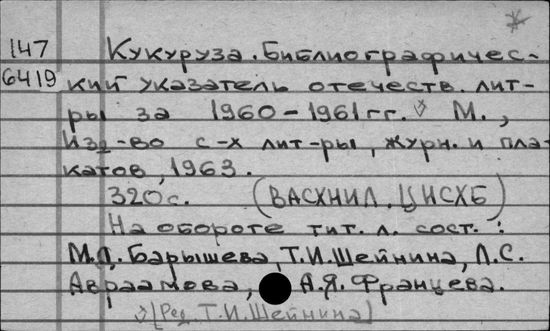 147 Кукуруза. Библиографичес-
6419 кий указатель отечеств. лит-
ры за 1960-1961 гг. М.,
Изд-во с-х лит-ры, журн. и пла-
катов, 1963.
320 с. (ВАСХНИЛ. ЦНСХБ)
На обороте тит. л. сост.:
М.П. Барышева, Т.И. Шейнина, Л.С.
Авраамова, А.Я. Францева.
[Ред. Т.И. Шейнина]